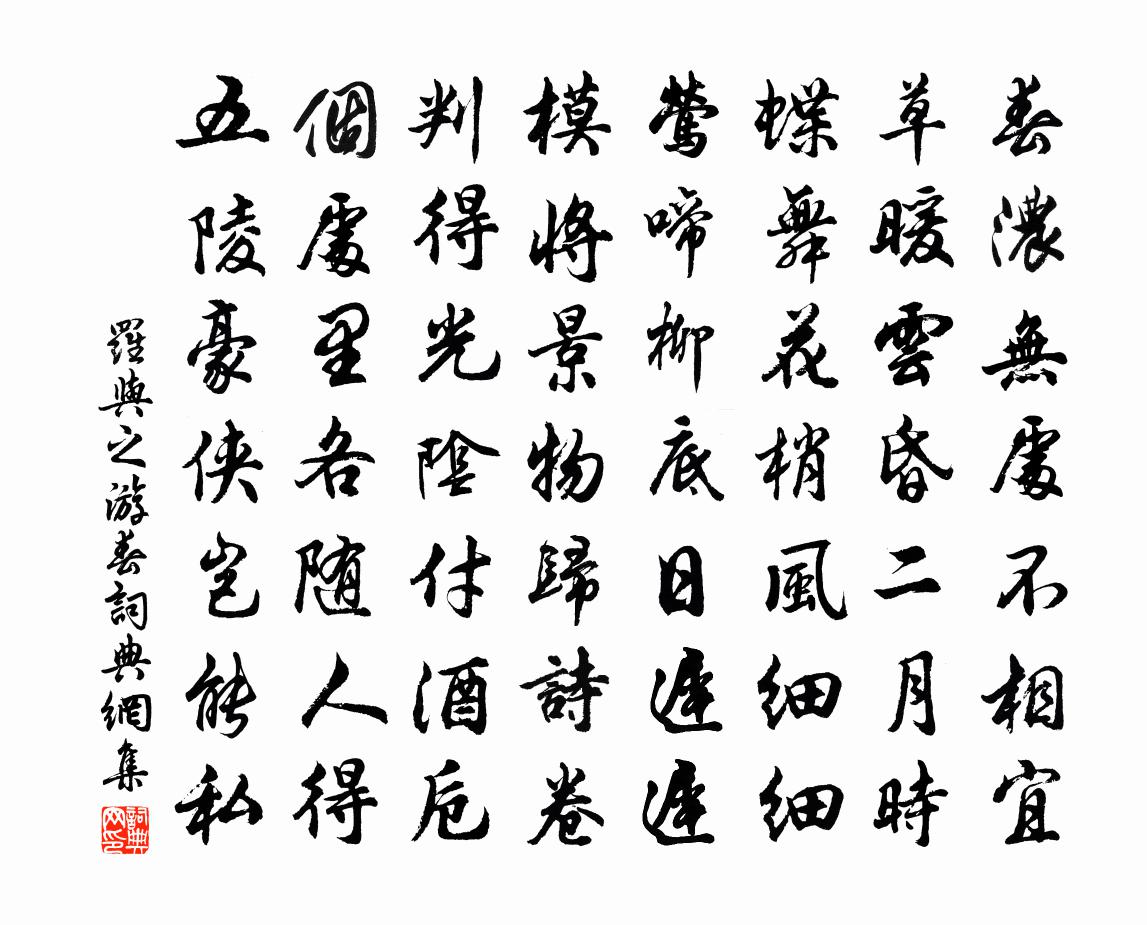 春濃無處不相宜
草暖雲昏二月時
蝶舞花梢風細細
鶯啼柳底日遲遲
模將景物歸詩卷
判得光陰付酒卮
個處里各随人得
五陵豪俠豈能私
羅與之游春詞典網集
詞典网印